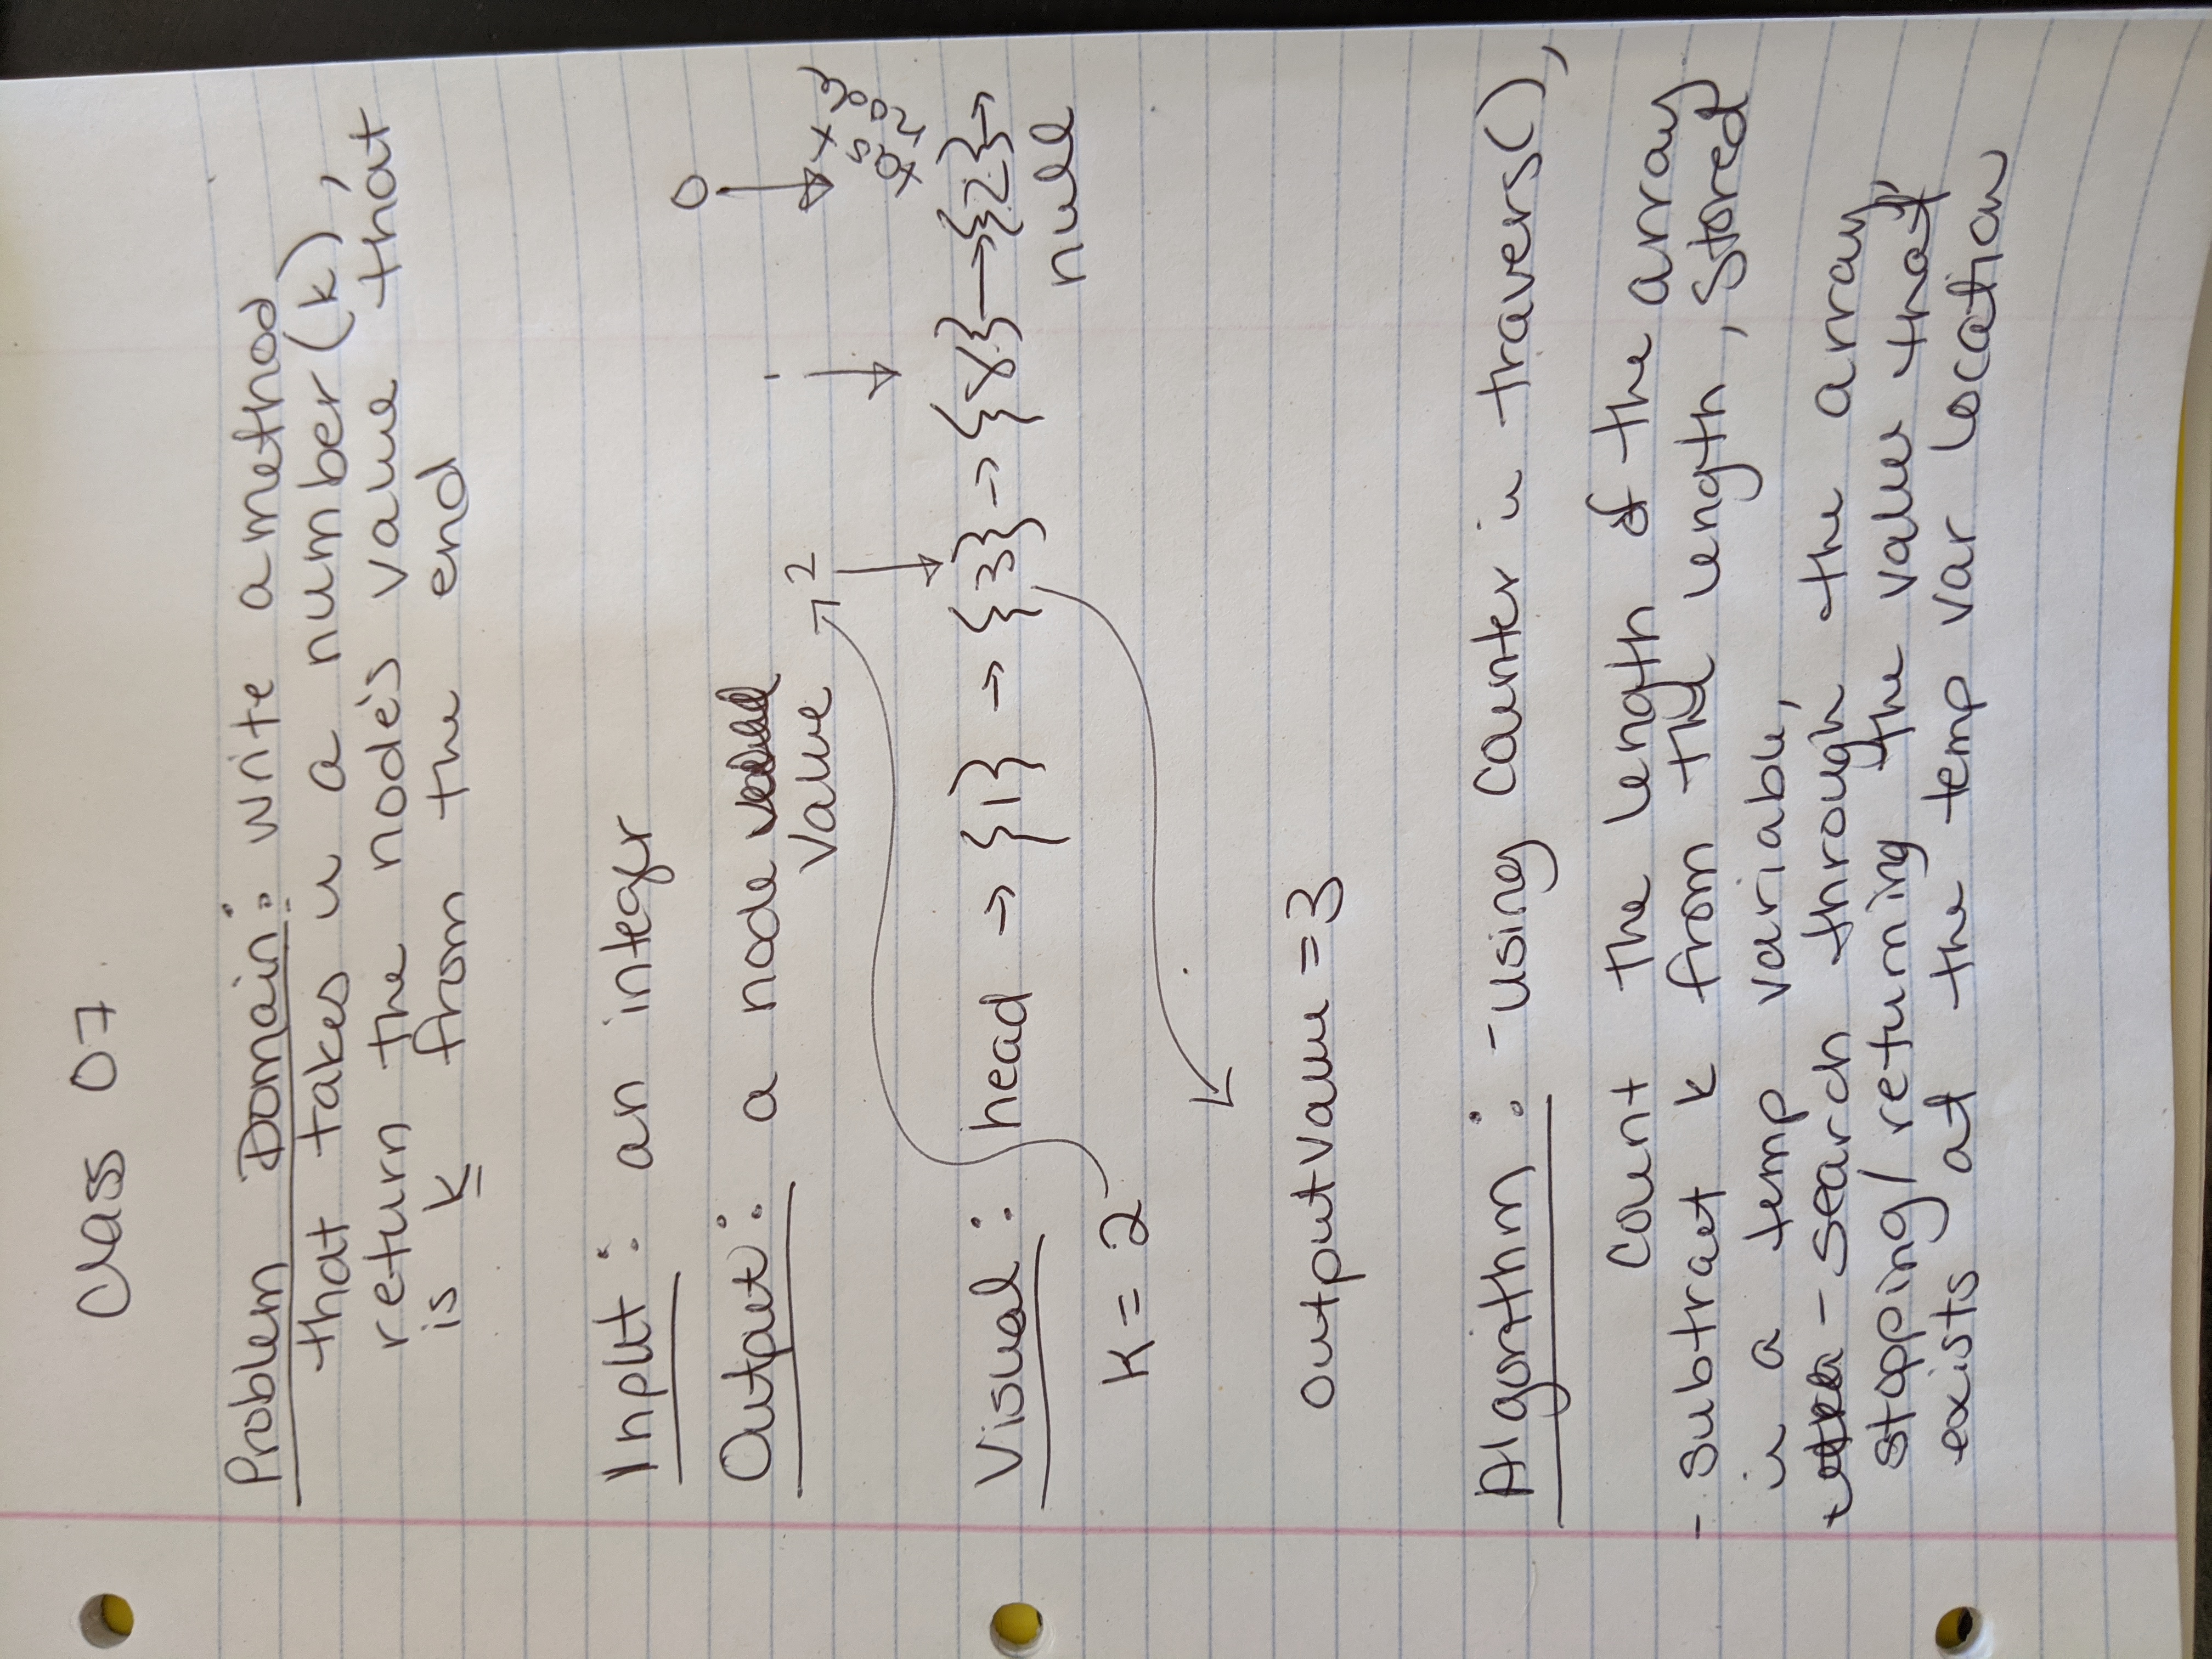 Class 07
Problem Domain: write a method
that takes in a number (k),
return the node's value that
is k from the end
Input: an integer
Output: a node
value
2
1
0
last
node
Visual: head → {1} → {3} → {8} → {2} →
null
k = 2
output value = 3
Algorithm: -using counter in travers(),
count the length of the array
- subtract k from the length, stored
in a temp variable,
- search through the array,
stopping/returning the value that
exists at the temp var location